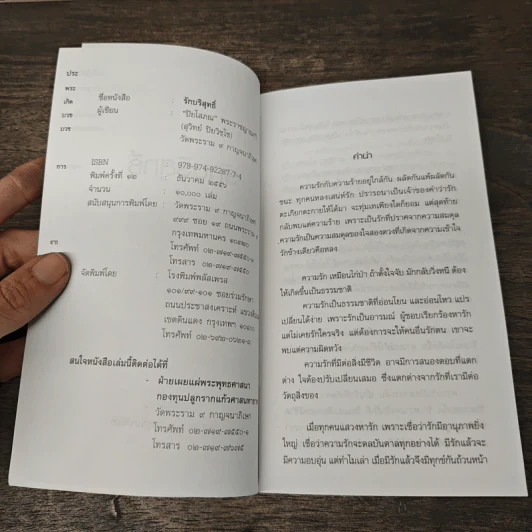 ประ
พระ
เกิด
บวช
บวช
การ
งาน
ชื่อหนังสือ : รักบริสุทธิ์
ผู้เขียน : "ปิยโสภณ" พระราชญาณกวี
(สุวิทย์ ปิยวิชฺโช)
วัดพระราม ๙ กาญจนาภิเษก
ISBN : 978-974-92287-7-4
พิมพ์ครั้งที่ ๑๒ : ธันวาคม ๒๕๕๖
จำนวน : ๑๐,๐๐๐ เล่ม
สนับสนุนการพิมพ์โดย : วัดพระราม ๙ กาญจนาภิเษก
๙๙๙ ซอย ๑๙ ถนนพระราม ๙
กรุงเทพมหานคร ๑๐๓๒๐
โทรศัพท์ ๐๒-๗๑๙-๗๕๕๐-๑
โทรสาร ๐๒-๗๑๙-๗๕๕๐
จัดพิมพ์โดย : โรงพิมพ์พลัสเพรส
๑๐๑/๙๙-๑๐๑ ซอยร่วมรักษา
ถนนประชาสงเคราะห์ แขวงดินแดง
เขตดินแดง กรุงเทพฯ
สนใจหนังสือเล่มนี้ติดต่อได้ที่
- ฝ่ายเผยแผ่พระพุทธศาสนา
กองทุนปลูกรากแก้วศาสนทายาท
วัดพระราม ๙ กาญจนาภิเษก
โทรศัพท์ ๐๒-๗๑๙-๗๕๕๐-๑
โทรสาร ๐๒-๗๑๙-๗๖๗๕
คำนำ
ความรักกับความร้ายอยู่ใกล้กัน ผลัดกันแพ้ผลัดกัน
ชนะ ทุกคนหลงเสน่ห์รัก ปรารถนาเป็นเจ้าของคำว่ารัก
ตะเกียกตะกายให้ได้มา จะทุ่มเทเพียงใดก็ยอม แต่สุดท้าย
กลับพบแต่ความร้าย เพราะเป็นรักที่ปราศจากความสมดุล
ความรักเป็นความสมดุลของใจสองดวงที่เกิดจากความเข้าใจ
รักข้างเดียวคือหลง
ความรัก เหมือนไก่ป่า ถ้าตั้งใจจับ มักกลับวิ่งหนี ต้อง
ให้เกิดขึ้นเป็นธรรมชาติ
ความรักเป็นธรรมชาติที่อ่อนโยน และอ่อนไหว แปร
เปลี่ยนได้ง่าย เพราะเป็นอารมณ์ ผู้ชอบเรียกร้องหารัก
แต่ไม่เคยรักใครจริง แต่ต้องการจะให้คนอื่นรักตน เขาจะ
พบแต่ความผิดหวัง
ความรักที่มีต่อสิ่งมีชีวิต อาจมีการสนองตอบที่แตก
ต่าง ใจต้องปรับเปลี่ยนเสมอ ซึ่งแตกต่างจากรักที่เรามีต่อ
วัตถุสิ่งของ
เมื่อทุกคนแสวงหารัก เพราะเชื่อว่ารักมีอานุภาพยิ่ง
ใหญ่ เชื่อว่าความรักจะดลบันดาลทุกอย่างได้ มีรักแล้วจะ
มีความอบอุ่น แต่ทำไมเล่า เมื่อมีรักแล้วจึงมีทุกข์กันถ้วนหน้า